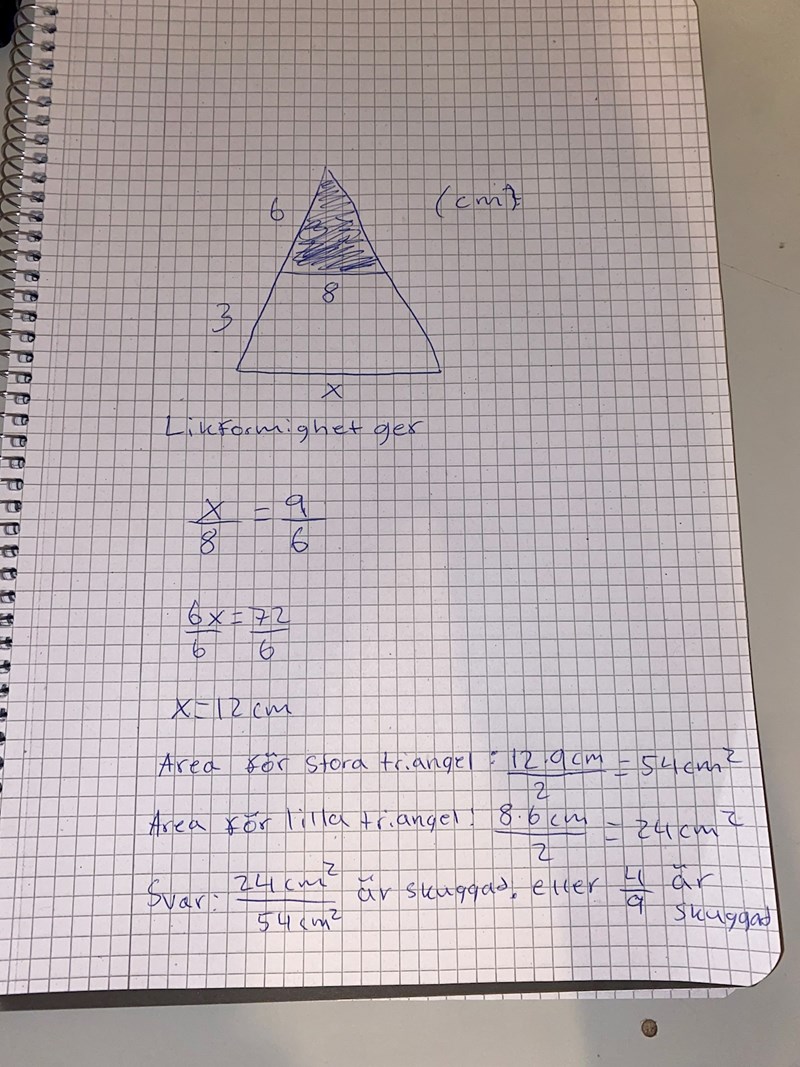 6
(cm)
8
3
x
Likformighet ger
x/8 = 9/6
6x/6 = 72/6
x=12cm
Area för stora triangel: 12·9cm/2 = 54cm²
Area för lilla triangel: 8·6cm/2 = 24cm²
Svar: 24cm²/54cm² är skuggad, eller 4/9 är
skuggad